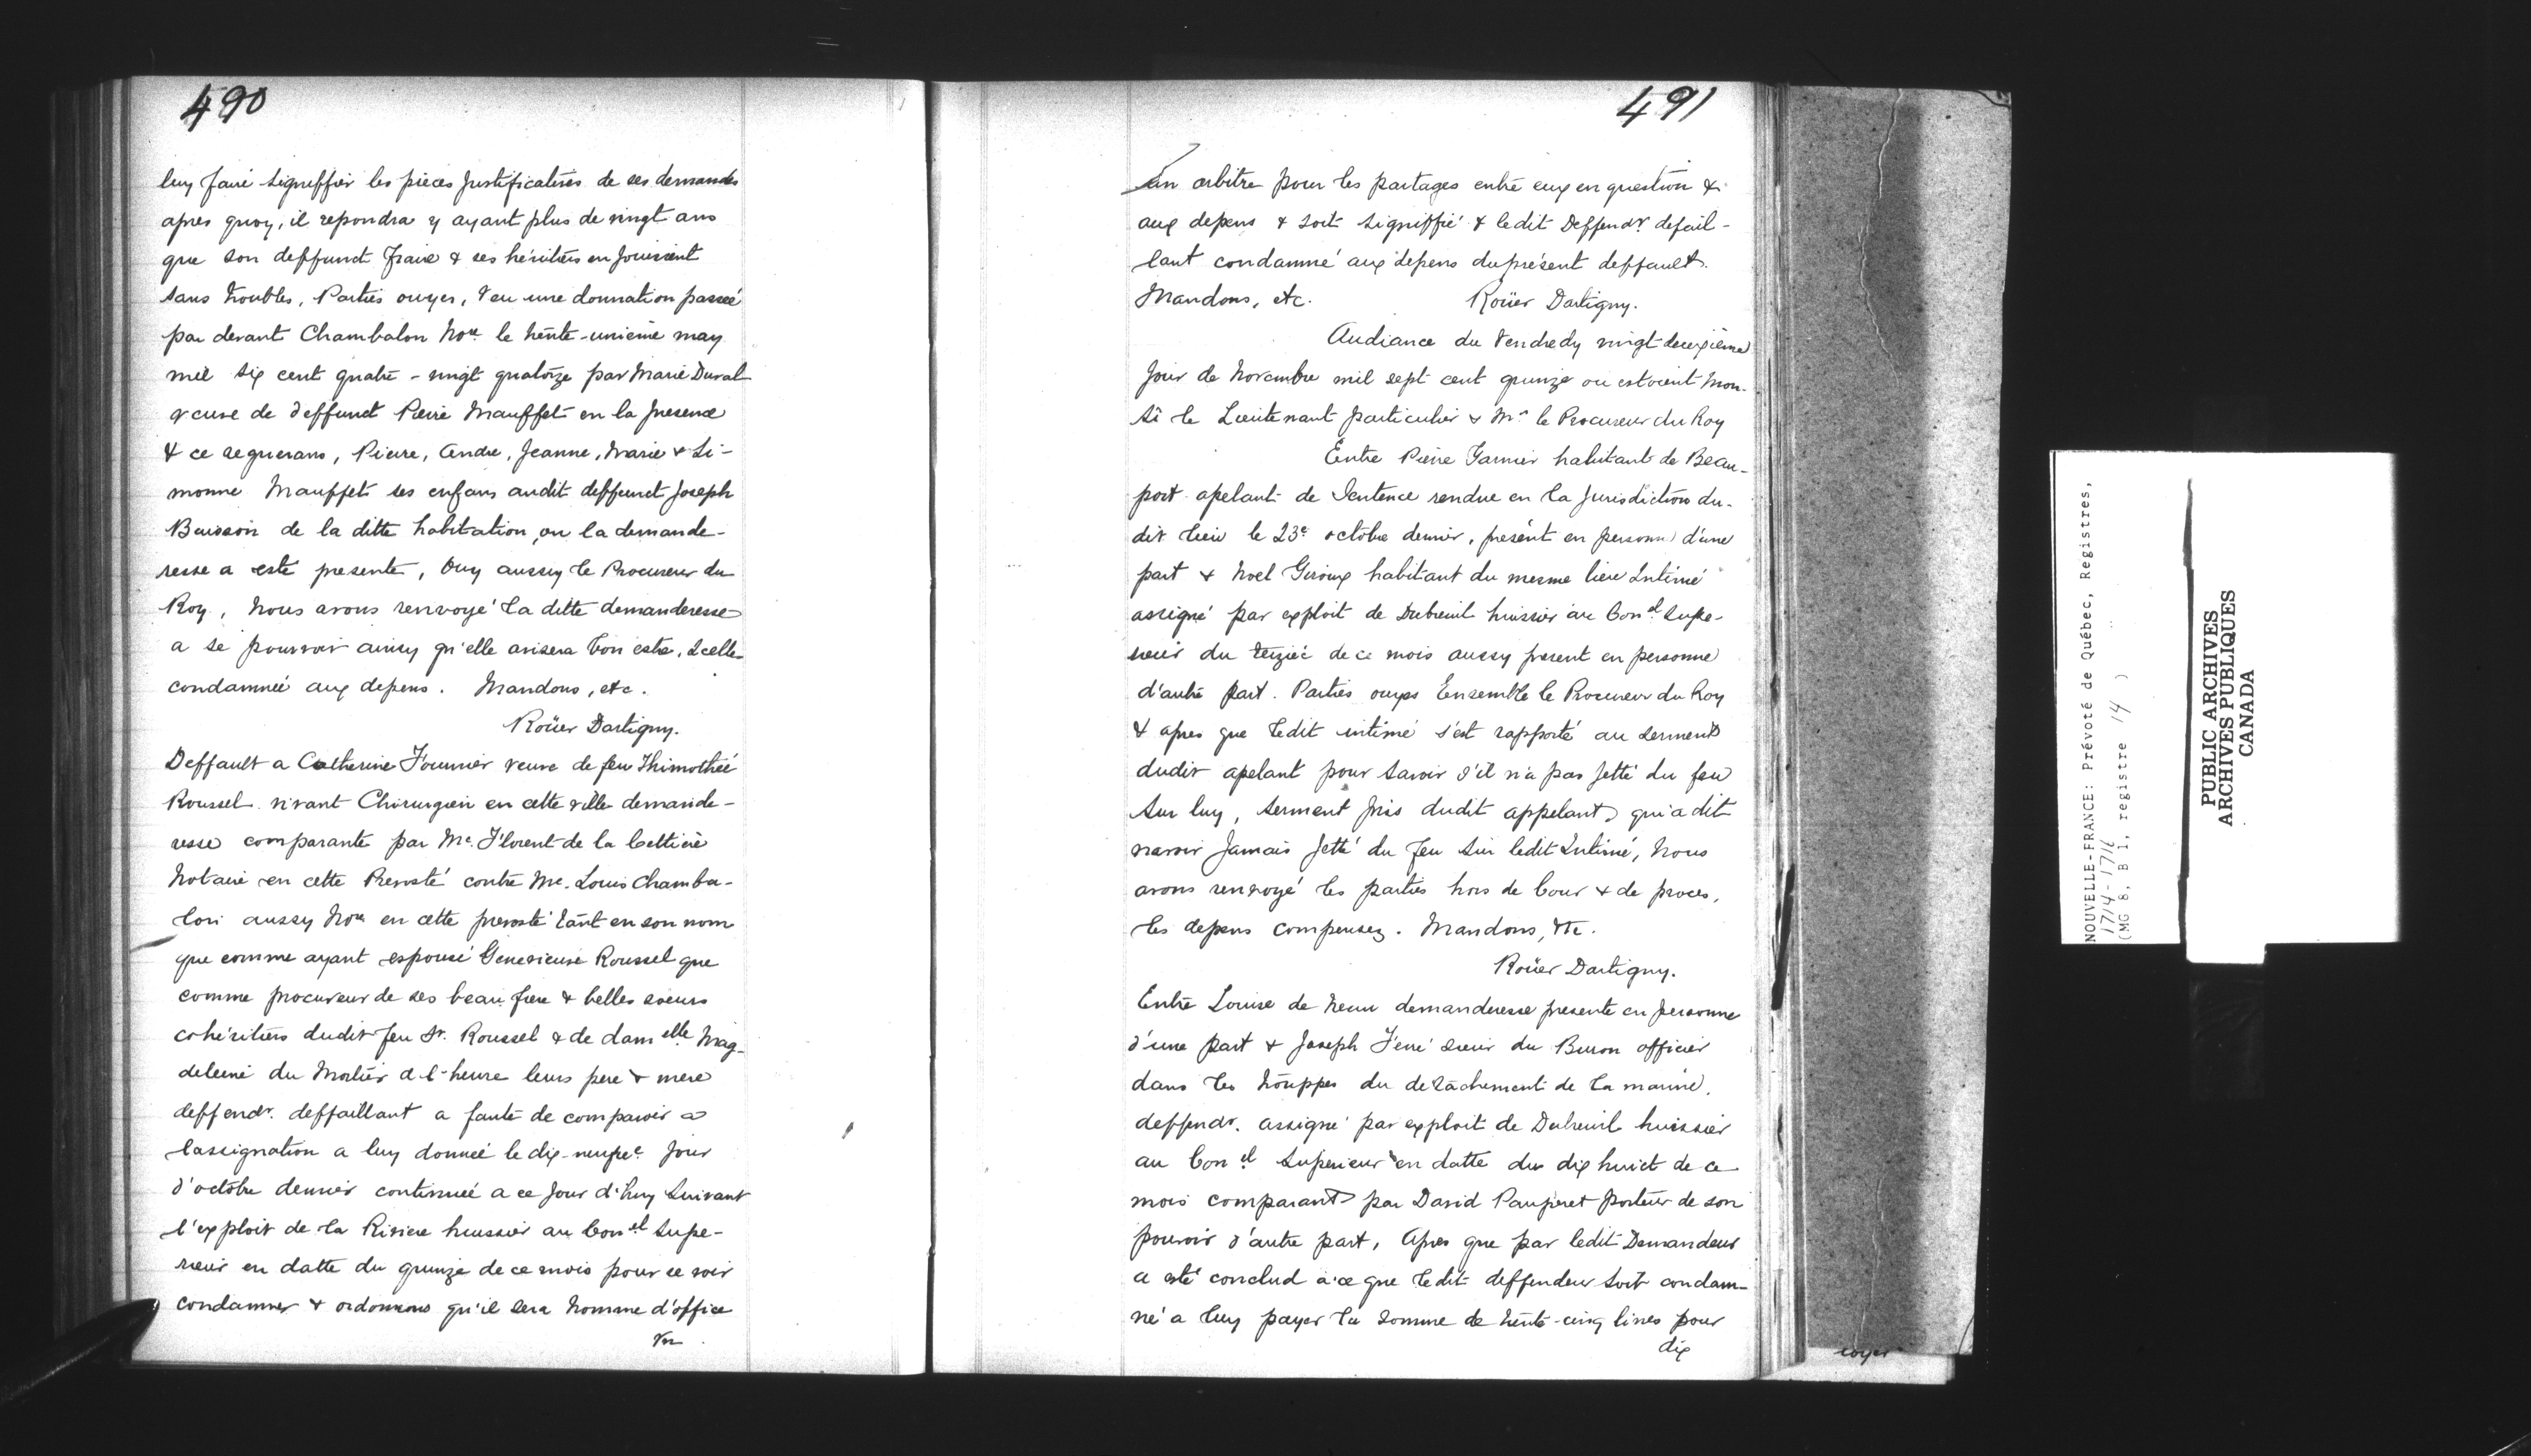 490
luy faire signeffier les pieces justificatives de ses demandes
apres quoy, il repondra y ayant plus de vingt ans
que son deffunct fraire & ses héritiers en jouissent
sans troubles, Parties ouyes, Veu une donnation passeé
par devant Chambalon Nore le trente-unieme may
mil six cent quatre-vingt quatorze par Marie Duval
veuve de deffunct Pierre Mauffet en la presence
& ce requerans, Pierre, Andre, Jeanne, Marie & Si-
monne Mauffet ses enfans audit deffunct Joseph
Buisson de la ditte habitation, ou la demande-
resse a este presente, Ouy aussy le Procureur du
Roy, Nous avons renvoyé la ditte demanderesse
a se pourvoir ainsy qu'elle avisera bon estre, Icelle
condamneé aux depens. Mandons, etc.
Roüer Dartigny.
Deffault a Catherine Fournier veuve de feu Thimotheé
Roussel vivant Chirurgien en cette ville demande-
resse comparante par Me. Florent de la Cettiere
Notaire en cette Prevosté contre Me. Louis Chamba-
lon aussy Nore en cette prevosté tant en son nom
que comme ayant espousé Genevieuve Roussel que
comme procureur de ses beau frere & belles soeurs
cohéritiers dudit feu Sr. Roussel & de damelle Mag-
deleine du Mortier de l'heure leurs pere & mere
deffendr. deffaillant a faute de comparoir a
lassignation a luy donneé le dix-neufve. jour
d'octobre dernier continueé a ce jour d'huy suivant
l'exploit de la Riviere huissier au Conel Supe-
rieur en datte du quinze de ce mois pour se voir
condamner & ordonnons qu'il sera nommé d'office
Vn
491
Un arbitre pour les partages entre eux en question &
aux depens & soit signiffié & ledit Deffendr. defail-
lant condamné aux depens du présent deffault.
Mandons, etc. Roüer Dartigny.
Audiance du Vendredy vingt deuxieme
jour de Novembre mil sept cent quinze ou estoient Mon-
sr le Lieutenant particulier & Mr le Procureur du Roy
Entre Pierre Garnier habitant de Beau-
port apelant de Sentence rendue en la Jurisdiction du-
dit lieu le 23e octobre dernier, présent en personne d'une
part & Noel Giroux habitant du mesme lieu Intimé
assigné par exploit de Dubreuil huissier au Conel Supe-
rieur du de ce mois aussy present en personne
d'autre part. Parties ouyes Ensemble le Procureur du Roy
& apres que ledit intimé s'est rapporté au serment
dudit apelant pour savoir s'il n'a pas jetté du feu
sur luy, serment pris dudit appelant qui a dit
navoir jamais jetté du feu sur ledit Intimé, Nous
avons renvoyé les parties hors de Cour & de proces,
les depens compensez. Mandons, etc.
Roüer Dartigny.
Entre Louise de Neuu demanderesse presente en personne
d'une part & Joseph Ferré sieur du Buron officier
dans les trouppes du detachement de la marine,
deffendr. assigné par exploit de Dubreuil huissier
au Conel Superieur en datte du dix huict de ce
mois comparant par David Pauperet porteur de son
pouvoir d'autre part, Apres que par ledit Demandeur
a esté conclud a ce que ledit deffendeur soit condam-
né a luy payer la somme de trente-cinq livres pour
dix
loyer
NOUVELLE-FRANCE: Prévoté de Québec, Registres,
1714-1716
(MG 8, B 1, registre 14 )
PUBLIC ARCHIVES
ARCHIVES PUBLIQUES
CANADA